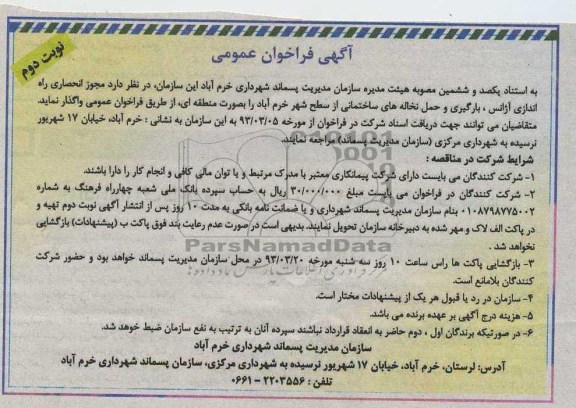 آگهی فراخوان عمومی
نوبت دوم
به استناد یکصد و ششمین مصوبه هیئت مدیره سازمان مدیریت پسماند شهرداری خرم آباد این سازمان، در نظر دارد مجوز انحصاری راه
اندازی آژانس ، بارگیری و حمل نخاله های ساختمانی از سطح شهر خرم آباد را بصورت منطقه ای، از طریق فراخوان عمومی واگذار نماید.
متقاضیان می توانند جهت دریافت اسناد شرکت در فراخوان از مورخه ۹۳/۰۳/۰۵ به این سازمان به نشانی : خرم آباد، خیابان ۱۷ شهریور
نرسیده به شهرداری مرکزی (سازمان مدیریت پسماند) مراجعه نمایند.
شرایط شرکت در مناقصه :
۱- شرکت کنندگان می بایست دارای شرکت پیمانکاری معتبر با مدرک مرتبط و یا توان مالی کافی و انجام کار را دارا باشند.
۲- شرکت کنندگان در فراخوان می بایست مبلغ ۳۰/۰۰۰/۰۰۰ ریال به حساب سپرده بانک ملی شعبه چهارراه فرهنگ به شماره
۰۱۰۸۷۹۸۷۷۵۰۰۲ بنام سازمان مدیریت پسماند شهرداری و یا ضمانت نامه بانکی به مدت ۱۰ روز پس از انتشار آگهی نوبت دوم تهیه و
در پاکت الف لاک و مهر شده به دبیرخانه سازمان تحویل نمایند. بدیهی است در صورت عدم رعایت بند فوق پاکت ب (پیشنهادات) بازگشایی
نخواهد شد .
۳- بازگشایی پاکت ها راس ساعت ۱۰ روز سه شنبه مورخه ۹۳/۰۳/۲۰ در محل سازمان مدیریت پسماند خواهد بود و حضور شرکت
کنندگان بلامانع است.
۴- سازمان در رد یا قبول هر یک از پیشنهادات مختار است.
۵- هزینه درج آگهی بر عهده برنده می باشد.
۶- در صورتیکه برندگان اول ، دوم حاضر به انعقاد قرارداد نباشند سپرده آنان به ترتیب به نفع سازمان ضبط خواهد شد.
سازمان مدیریت پسماند شهرداری خرم آباد
آدرس: لرستان، خرم آباد، خیابان ۱۷ شهریور نرسیده به شهرداری مرکزی، سازمان پسماند شهرداری خرم آباد
تلفن : ۲۲۰۳۵۵۶ - ۰۶۶۱
ParsNamadData